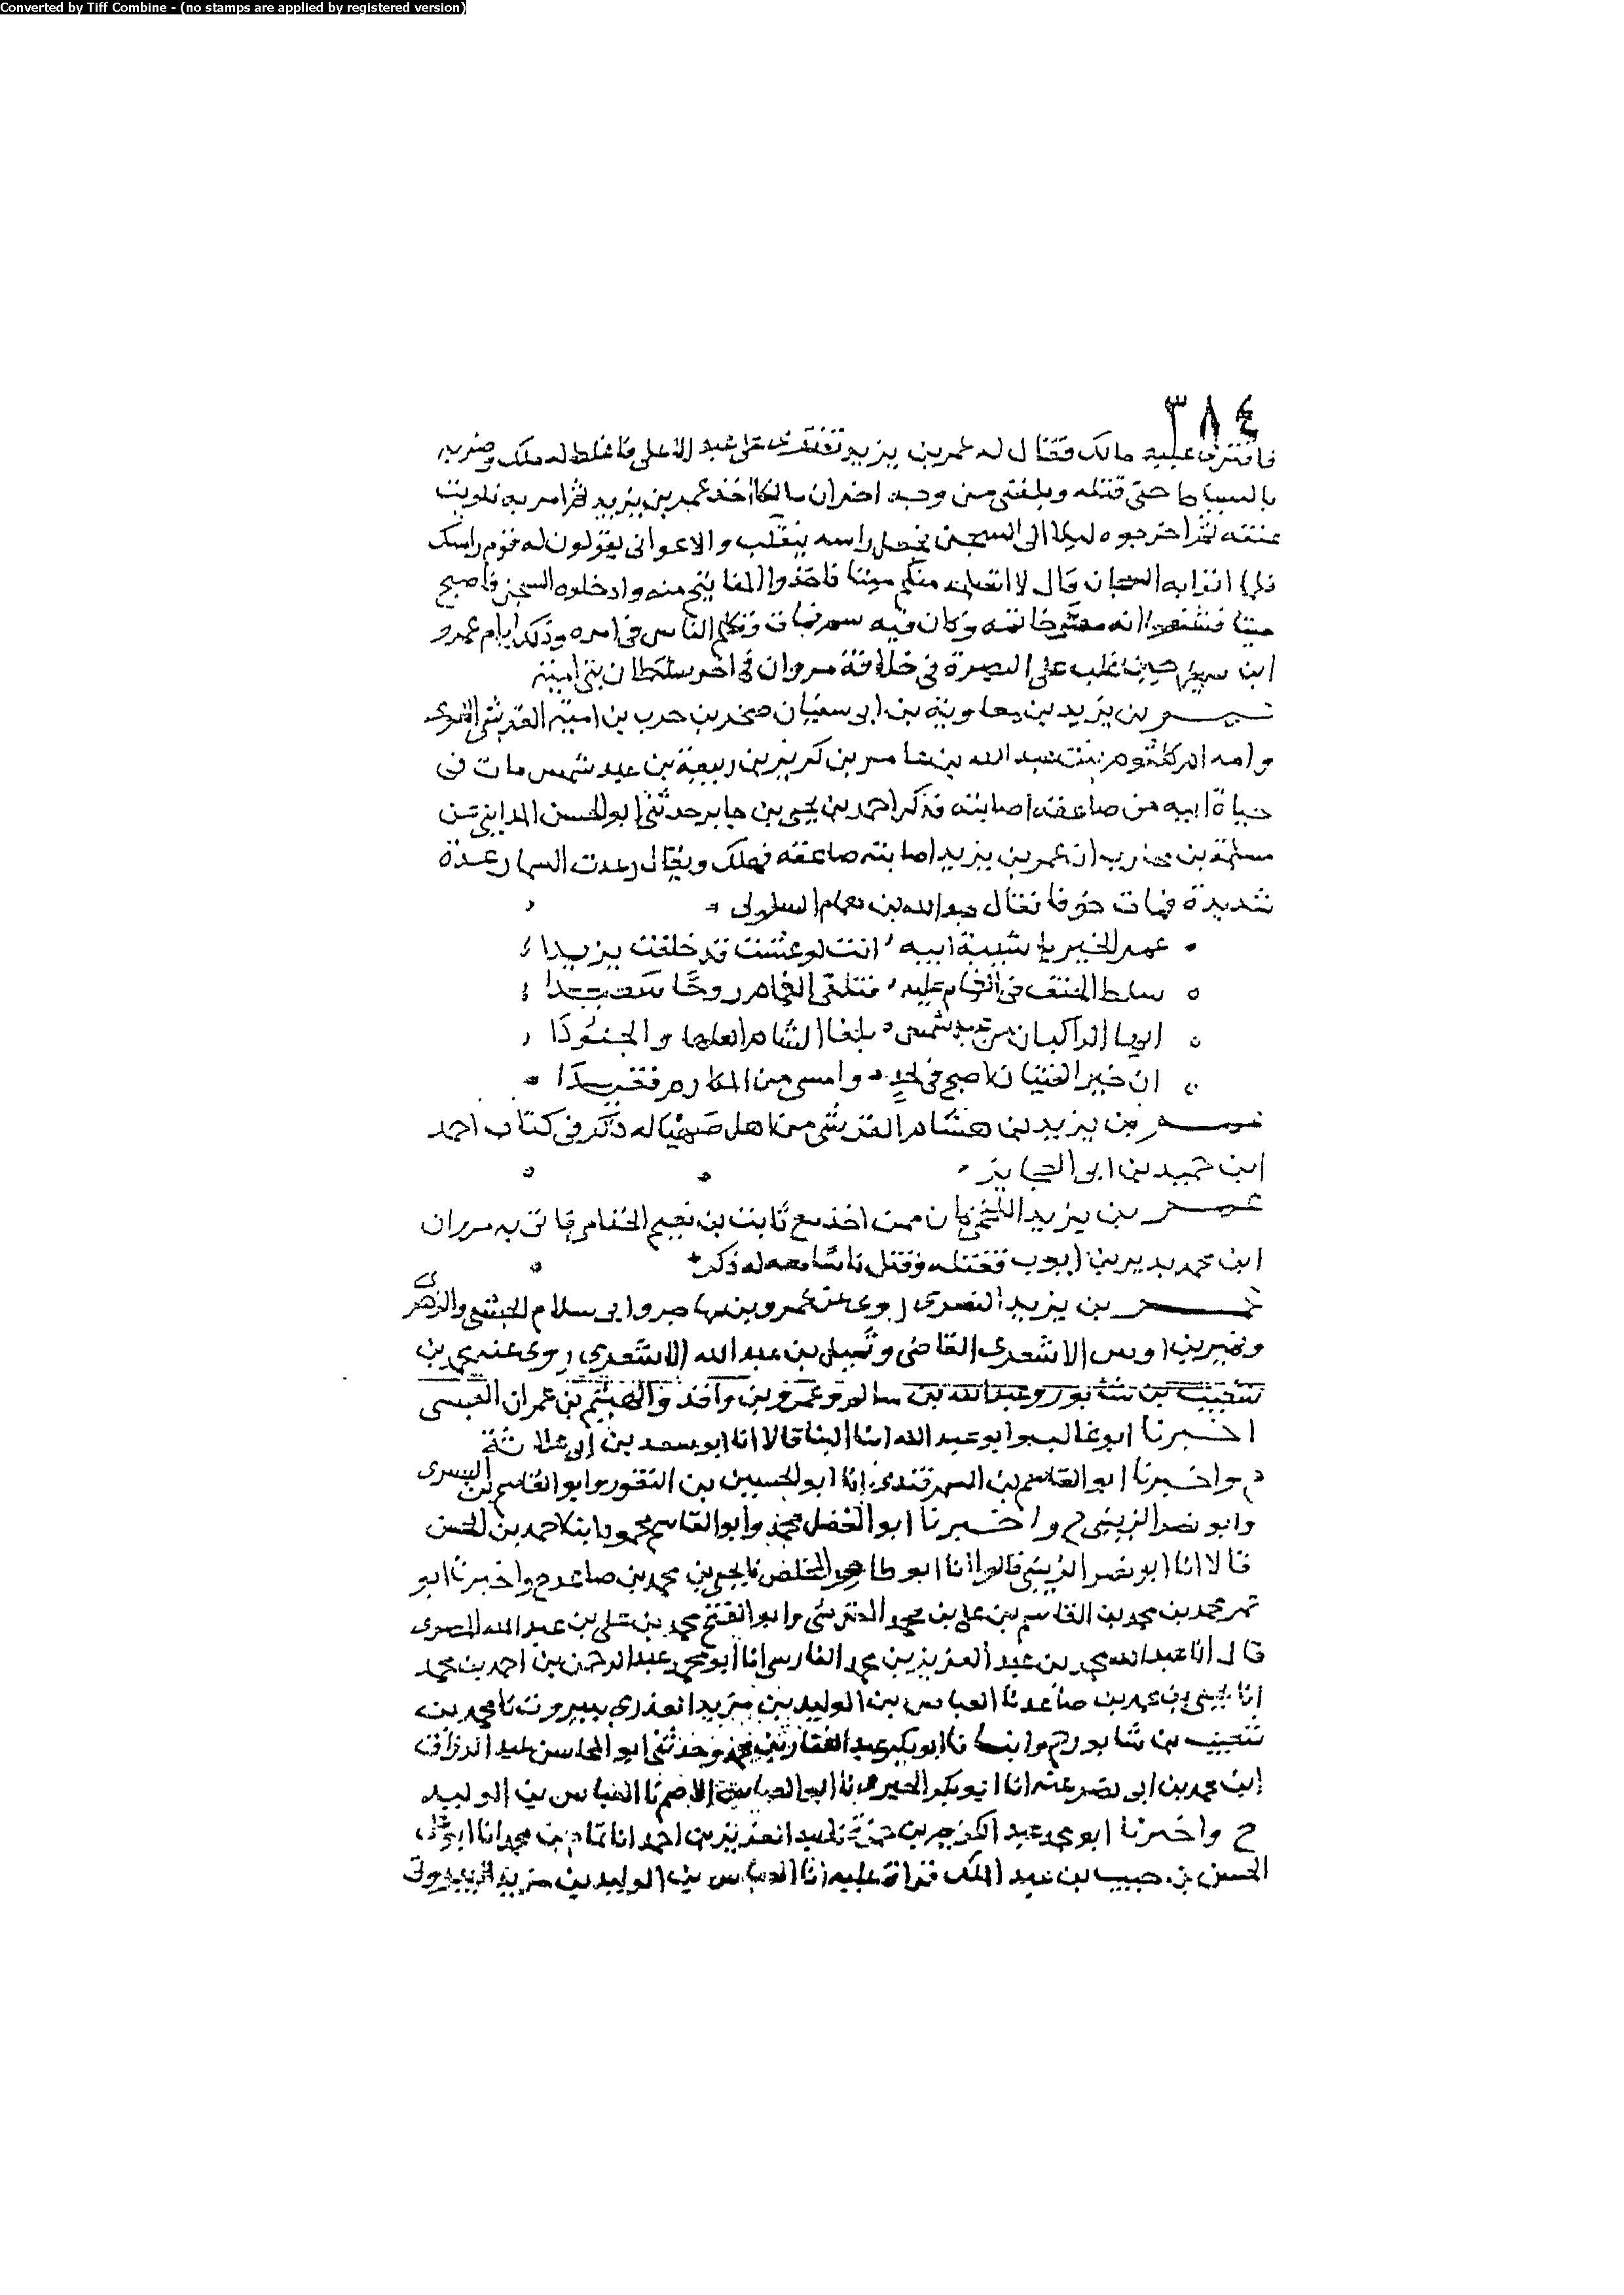 Converted by Tiff Combine - (no stamps are applied by registered version)
٣٨٤
فافترى عليه مالك فقال له عمر بن يزيد تفتري على عبد الاعلى فاغلظ له مالك وضربه
بالسياط حتى قتله وبلغني من وجه اخر ان مالكا اخذ عمر بن يزيد ثم امر به فلويت
عنقه ثم اخرجوه ليلا الى السجن فجعل راسه يتقلب والاعوان يقولون له قوم راسك
فلما اتوا به السجان قال لا اتسلمه منكم ميتا فاخذوا المفاتيح منه وادخلوه السجن فاصبح
ميتا خاتمه وكان فيه سم فمات وتكلم الناس في امره وذلك ايام عمرو
ابن حين غلب على البصرة في خلافة مروان في اخر سلطان بني امية
عمر بن يزيد بن معاوية بن ابي سفيان صخر بن حرب بن امية القرشي الاموي
وامه ام كلثوم بنت عبد الله بن عامر بن كريز بن ربيعة بن عبد شمس مات في
حياة ابيه من صاعقة اصابته فذكر احمد بن يحيى بن جابر حدثني ابو الحسن المدايني عن
مسلمة بن محارب ان عمر بن يزيد اصابته صاعقة فهلك ويقال رعدت السما رعدة
شديدة فمات خوفا فقال عبد الله بن همام السلولي
عمر الخير يا شبيه ابيه انت لو عشت قد خلفت يزيدا
سلط الحتف في الغمام عليه فتلقى الغمام روحا سعيدا
ايها الراكبان من عبد شمس بلغا الشام اهلها والجنودا
ان خير الفتيان اصبح في لحد وامسى من المكارم فقيدا
عمر بن يزيد بن هشام القرشي من اهل صهيا له ذكر في كتاب احمد
ابن حميد بن ابو العجايز
عمر بن يزيد اللخمي كان ممن اخذ مع ثابت بن نعيم الجذامي فاتى به مروان
ابن محمد بدير ايوب فقتله وقتل ناسا معه له ذكر
عمر بن يزيد النصري روى عن عمرو بن مهاجر وابي سلام الحبشي والزهري
ونمير بن اويس الاشعري القاضي و بن عبد الله الاشعري روى عنه محمد بن
شعيب بن شابور وعبد الله بن سالم وعمرو بن واقد والهيثم بن عمران العبسي
اخبرنا ابو غالب وابو عبد الله ابنا البنا قالا انا ابو سعد بن ابي علاثة
ح واخبرنا ابو القاسم بن السمرقندي انا ابو الحسين بن النقور وابو القاسم بن البسري
وابو نصر الزينبي ح واخبرنا ابو الفضل محمد وابو القاسم محمود ابنا احمد بن الحسن
قالا انا ابو نصر الزينبي قالوا انا ابو طاهر المخلص نا يحيى بن محمد بن صاعد ح واخبرنا ابو
محمد بن محمد بن القاسم بن علي بن محمد القرشي وابو الفتح محمد بن علي بن عبد الله المصري
قال انا عبد الله محمد بن عبد العزيز بن محمد الفارسي انا ابو محمد عبد الرحمن بن احمد بن محمد
انا يحيى بن محمد بن صاعد نا العباس بن الوليد بن مزيد العذري ببيروت نا محمد بن
شعيب بن شابور ح وانبانا ابو بكر عبد الغفار بن محمد وحدثني ابو المحاسن عبد الرزاق
ابن محمد بن ابو نصر عنه انا ابو بكر الحيري نا ابو العباس الاصم نا العباس بن الوليد
ح واخبرنا ابو محمد عبد الكريم بن حمزة نا عبد العزيز بن احمد انا تمام بن محمد انا ابو علي
الحسن بن حبيب بن عبد الملك قراة عليه انا العباس بن الوليد بن مزيد البيروتي